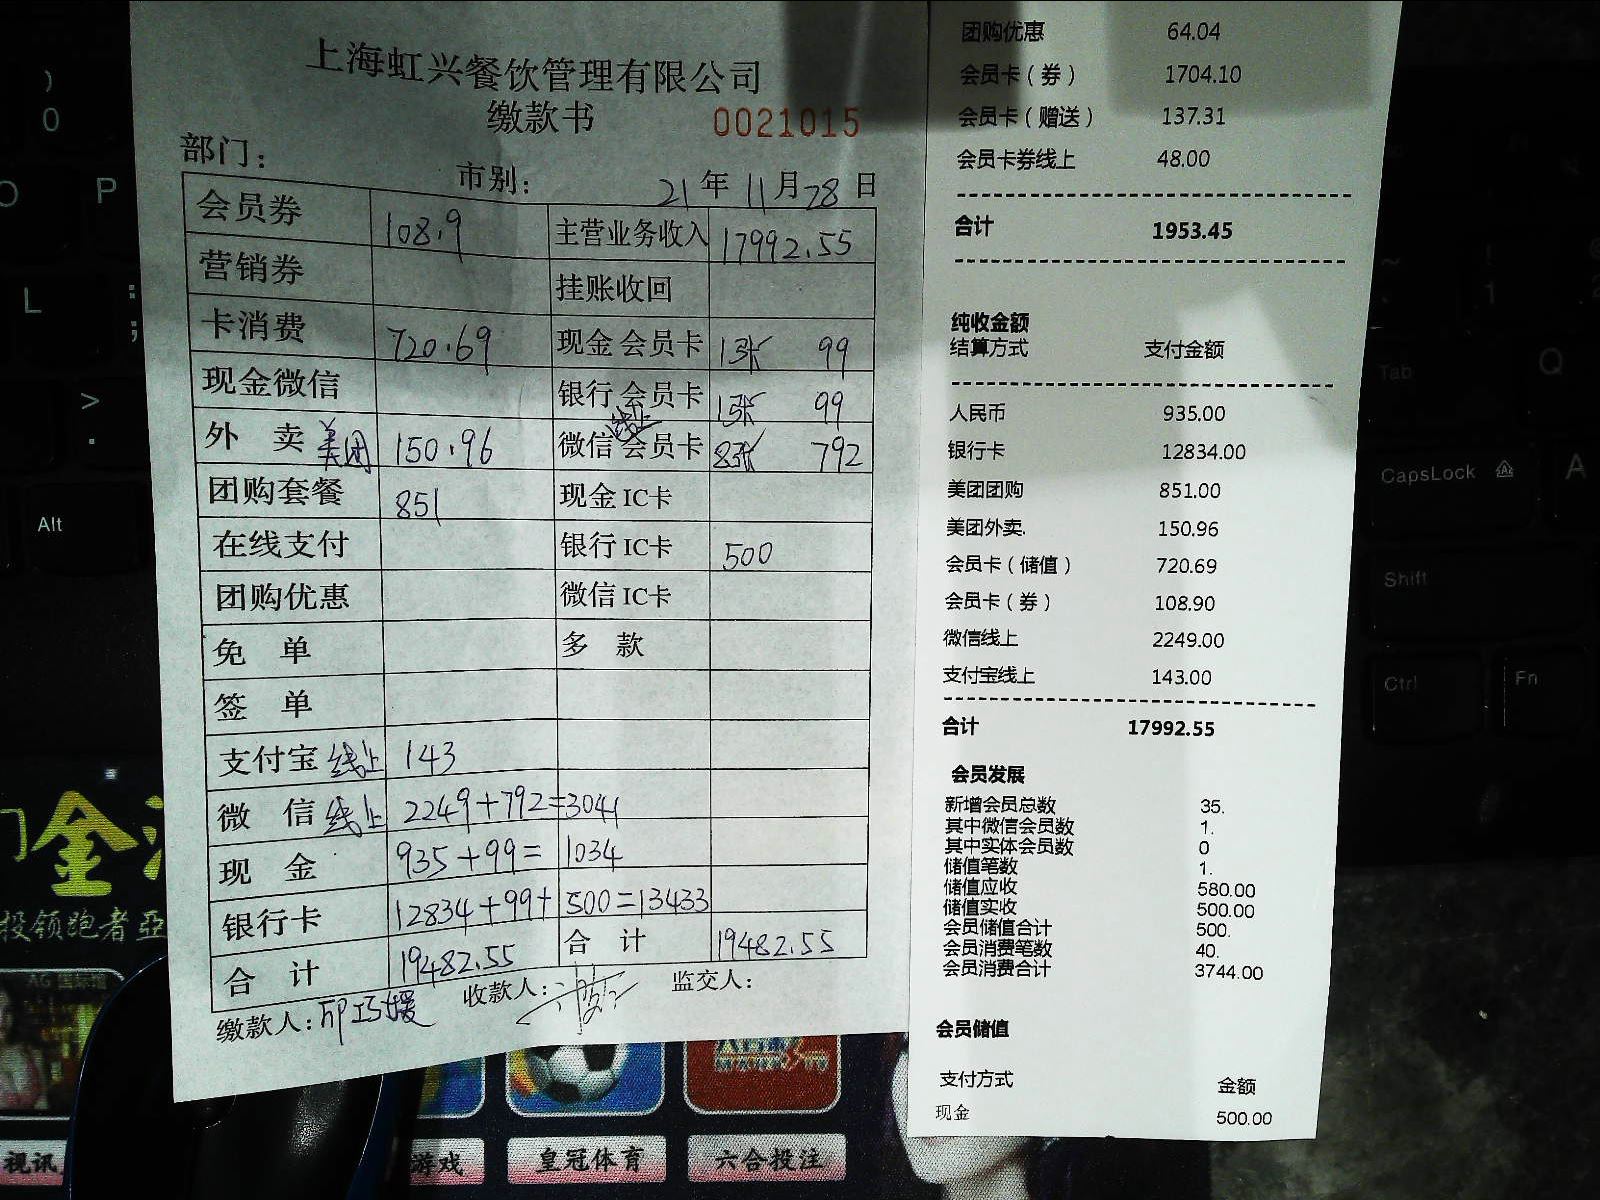 上海虹兴餐饮管理有限公司
缴款书 0021015
部门： 市别： 21年11月28日
会员券 108.9 主营业务收入 17992.55
营销券 挂账收回
卡消费 720.69 现金会员卡 1张 99
现金微信 银行会员卡 1张 99
外卖 美团 150.96 微信线上会员卡 8张 792
团购套餐 851 现金IC卡
在线支付 银行IC卡 500
团购优惠 微信IC卡
免单 多款
签单
支付宝 线上 143
微信 线上 2249+792=3041
现金 935+99=1034
银行卡 12834+99+500=13433
合计 19482.55 合计 19482.55
缴款人： 收款人： 监交人：
团购优惠 64.04
会员卡（券） 1704.10
会员卡（赠送） 137.31
会员卡券线上 48.00
合计 1953.45
纯收金额
结算方式 支付金额
人民币 935.00
银行卡 12834.00
美团团购 851.00
美团外卖. 150.96
会员卡（储值） 720.69
会员卡（券） 108.90
微信线上 2249.00
支付宝线上 143.00
合计 17992.55
会员发展
新增会员总数 35.
其中微信会员数 1.
其中实体会员数 0
储值笔数 1.
储值应收 580.00
储值实收 500.00
会员储值合计 500.
会员消费笔数 40.
会员消费合计 3744.00
会员储值
支付方式 金额
现金 500.00
)
0
P
L
:
;
>
.
Alt
Tab
Q
CapsLock
A
Shift
Ctrl
Fn
门金
投领跑者亞
AG国际馆
视讯
游戏
皇冠体育
六合投注